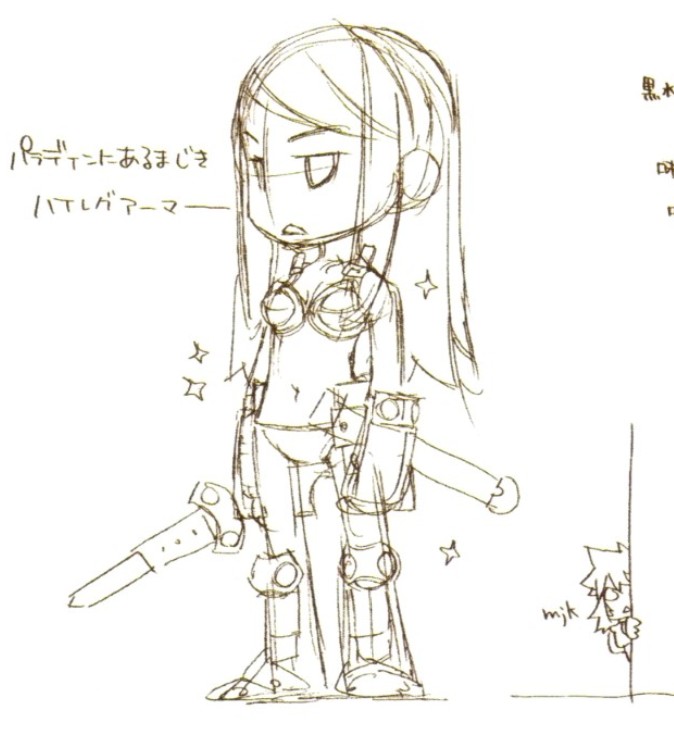 パラディンにあるまじき
ハイレグアーマー
黒
mjk